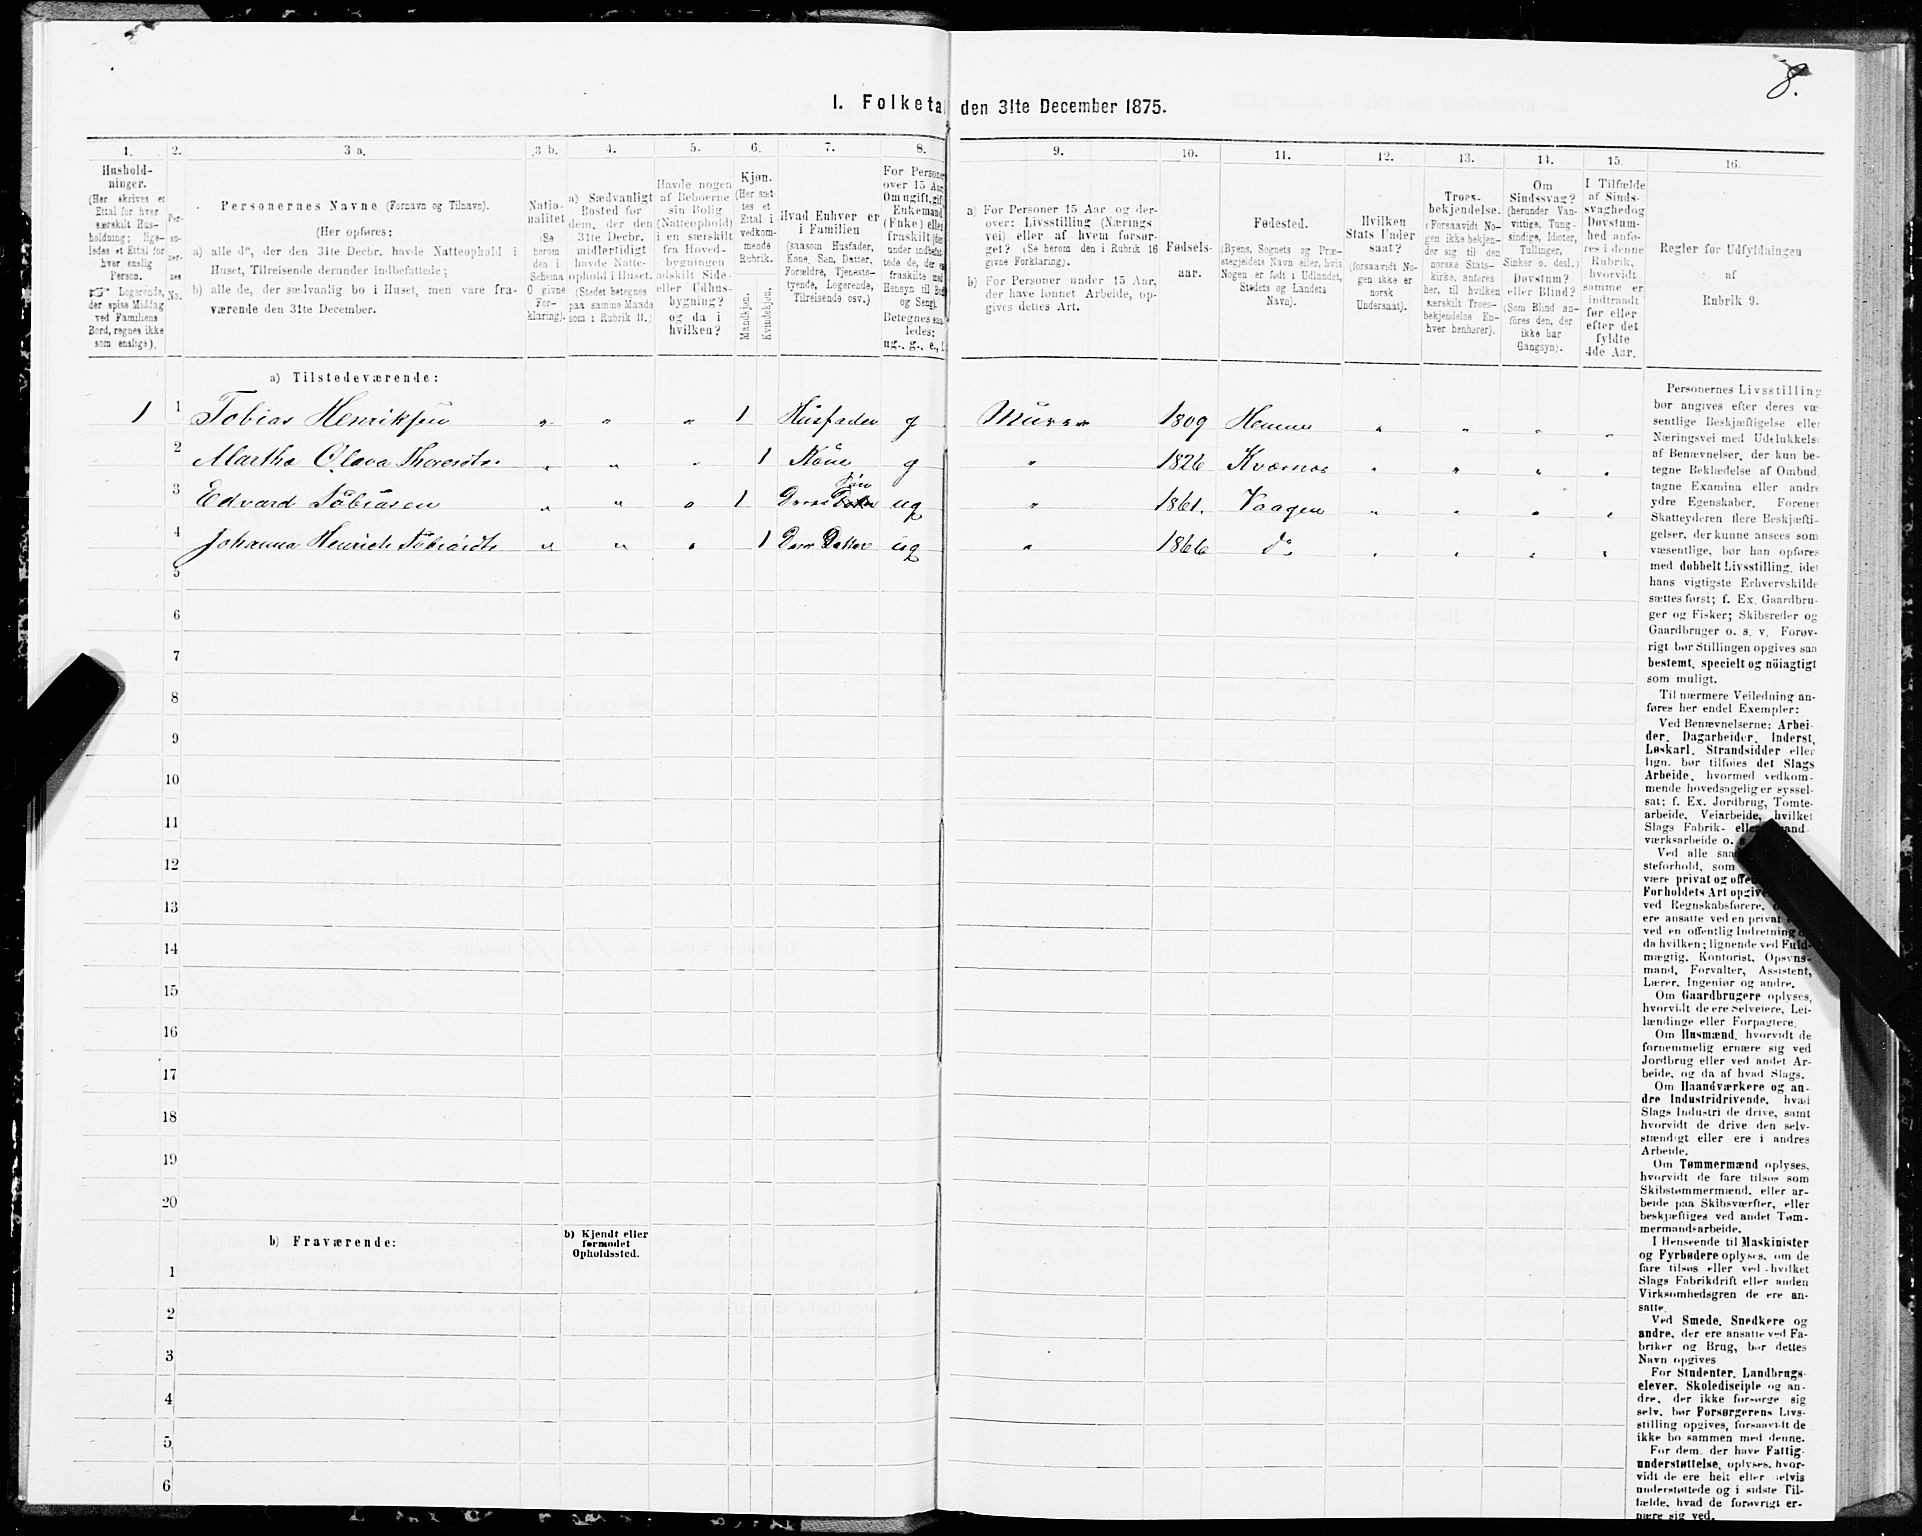 8.
I. Folketal den 31te December 1875.
1. 2. 3 a. 3 b. 4. 5. 6. 7. 8. 9. 10. 11. 12. 13. 14. 15. 16.
Hushold-
ninger.
(Her skrives et
Ettal for hver
særskilt Hus-
holdning; lige-
ledes et Ettal for
hver enslig
Person.
☞ Logerende,
der spise Middag
ved Familiens
Bord, regnes ikke
som enslige).
Per-
so-
ner-
nes
No.
Personernes Navne (Fornavn og Tilnavn).
(Her opføres:
a) alle de, der den 31te Decbr. havde Natteophold i
Huset, Tilreisende derunder indbefattede;
b) alle de, der sædvanlig bo i Huset, men vare fra-
værende den 31te December.
Natio-
nalitet
(Se
herom
den i
Schema
O givne
For-
klaring).
a) Sædvanligt
Bosted for
dem, der den
31te Decbr.
midlertidigt
havde Natte-
ophold i Huset.
(Stedet betegnes
paa samme Maade
som i Rubrik 11.)
Havde nogen
af Beboerne
sin Bolig
(Natteophold)
i en særskilt
fra Hoved-
bygningen
adskilt Side-
eller Udhus-
bygning?
og da i
hvilken?
Kjøn.
(Her sæt-
tes et
Ettal i
vedkom-
mende
Rubrik.
Mandkjøn.
Kvindekjøn.
Hvad Enhver er
i Familien
(saasom Husfader,
Kone, Søn, Datter,
Forældre, Tjeneste-
tyende, Logerende,
Tilreisende osv.)
For Personer
over 15 Aar
Om ugift, gift,
Enkemand
(Enke) eller
fraskilt
under indbefat-
tede de, der ere
fraskilte med
Hensyn til Bord
og Seng).
Betegnes saa-
ledes:
ug., g., e., f.
a) For Personer 15 Aar og der-
over: Livsstilling (Nærings-
vei) eller af hvem forsør-
get? (Se herom den i Rubrik 16
givne Forklaring).
b) For Personer under 15 Aar,
der have lønnet Arbeide, op-
gives dettes Art.
Fødsels-
aar.
Fødested.
(Byens, Sognets og Præ-
stegjeldets Navn eller, hvis
Nogen er født i Udlandet,
Stedets og Landets
Navn).
Hvilken
Stats Under
saat?
(forsaavidt No-
gen ikke er
norsk
Undersaat).
Troes-
bekjendelse.
(Forsaavidt No-
gen ikke bekjen-
der sig til den
norske Stats-
kirke, anføres
her, til hvilken
særskilt Troes-
bekjendelse En-
hver henhører).
Om
Sindssvag?
(herunder Van-
vittige, Tung-
sindige, Idioter,
Tullinger,
Sinker o. desl.)
Døvstum?
eller Blind?
(Som Blind an-
føres den, der
ikke har
Gangsyn).
I Tilfælde
af Sinds-
svaghed og
Døvstum-
hed anfø-
res i denne
Rubrik,
hvorvidt
samme er
indtraadt
før eller
efter det
fyldte
4de Aar.
Regler for Udfyldningen
af
Rubrik 9.
a) Tilstedeværende:
1 1 Tobias Henriksen „ „ „ 1 Husfader g Murer 1809 Hemne „ „ „ „
2 Martha Olava Thoresdtr „ „ „ 1 Kone g „ 1826 Kværnæs „ „ „ „
3 Edvard Tobiasen „ „ „ 1 Deres Datter Søn ug „ 1861. Vaagen „ „ „ „
4 Johanna Henrich Tobiasdtr „ „ „ 1 Deres Datter ug „ 1866 do „ „ „ „
5
6
7
8
9
10
11
12
13
14
15
16
17
18
19
20
b) Fraværende: b) Kjendt eller
formodet
Opholdssted.
1
2
3
4
5
6
Personernes Livsstilling
bør angives efter deres væ-
sentlige Beskjæftigelse eller
Næringsvei med Udelukkelse
af Benævnelser, der kun be-
tegne Beklædelse af Ombud,
tagne Examina eller andre
ydre Egenskaber. Forener
Skatteyderen flere Beskjæfti-
gelser, der kunne ansees som
væsentlige, bør han opføres
med dobbelt Livsstilling, idet
hans vigtigste Erhvervskilde
sættes først; f. Ex. Gaardbru-
ger og Fisker; Skibsreder og
Gaardbruger o. s. v. Forøv-
rigt bør Stillingen opgives saa
bestemt, specielt og nöiagtigt
som muligt.
Til nærmere Veiledning an-
føres her endel Exempler:
Ved Benævnelserne: Arbei-
der, Dagarbeider, Inderst,
Løskarl, Strandsidder eller
lign. bør tilføies det Slags
Arbeide, hvormed vedkom-
mende hovedsagelig er syssel-
sat; f. Ex. Jordbrug, Tomte-
arbeide, Veiarbeide, hvilket
Slags Fabrik- eller
værksarbeide o.
Ved alle
steforhold, som
være privat og
Forholdets Art
ved Regnskabsførere,
ere ansatte ved en privat
ved en offentlig Indretning
da hvilken; lignende ved Fuld-
mægtig, Kontorist, Opsyns-
mand, Forvalter, Assistent,
Lærer, Ingeniør og andre.
Om Gaardbrugere oplyses,
hvorvidt de ere Selveiere, Lei-
lændinge eller Forpagtere.
Om Husmænd, hvorvidt de
fornemmelig ernære sig ved
Jordbrug eller ved andet Ar-
beide, og da af hvad Slags.
Om Haandværkere og an-
dre Industridrivende, hvad
Slags Industri de drive, samt
hvorvidt de drive den selv-
stændigt eller ere i andres
Arbeide.
Om Tømmermænd oplyses,
hvorvidt de fare tilsøs som
Skibstømmermænd, eller ar-
beide paa Skibsværfter, eller
beskjæftiges ved andet Tøm-
mermandsarbeide.
I Henseende til Maskinister
og Fyrbødere oplyses, om de
fare tilsøs eller ved hvilket
Slags Fabrikdrift eller anden
Virksomhedsgren de ere an-
satte.
Ved Smede, Snedkere og
andre, der ere ansatte ved Fa-
briker og Brug, bør dettes
Navn opgives
For Studenter, Landbrugs-
elever, Skoledisciple og an-
dre, der ikke forsørge sig
selv, bør Forsørgerens Livs-
stilling opgives, forsaavidt de
ikke bo sammen med denne.
For dem, der have Fattig-
understøttelse, oplyses, hvor-
vidt de ere helt eller delvis
understøttede og i sidste Til-
fælde, hvad de forøvrigt er-
nære sig ved.